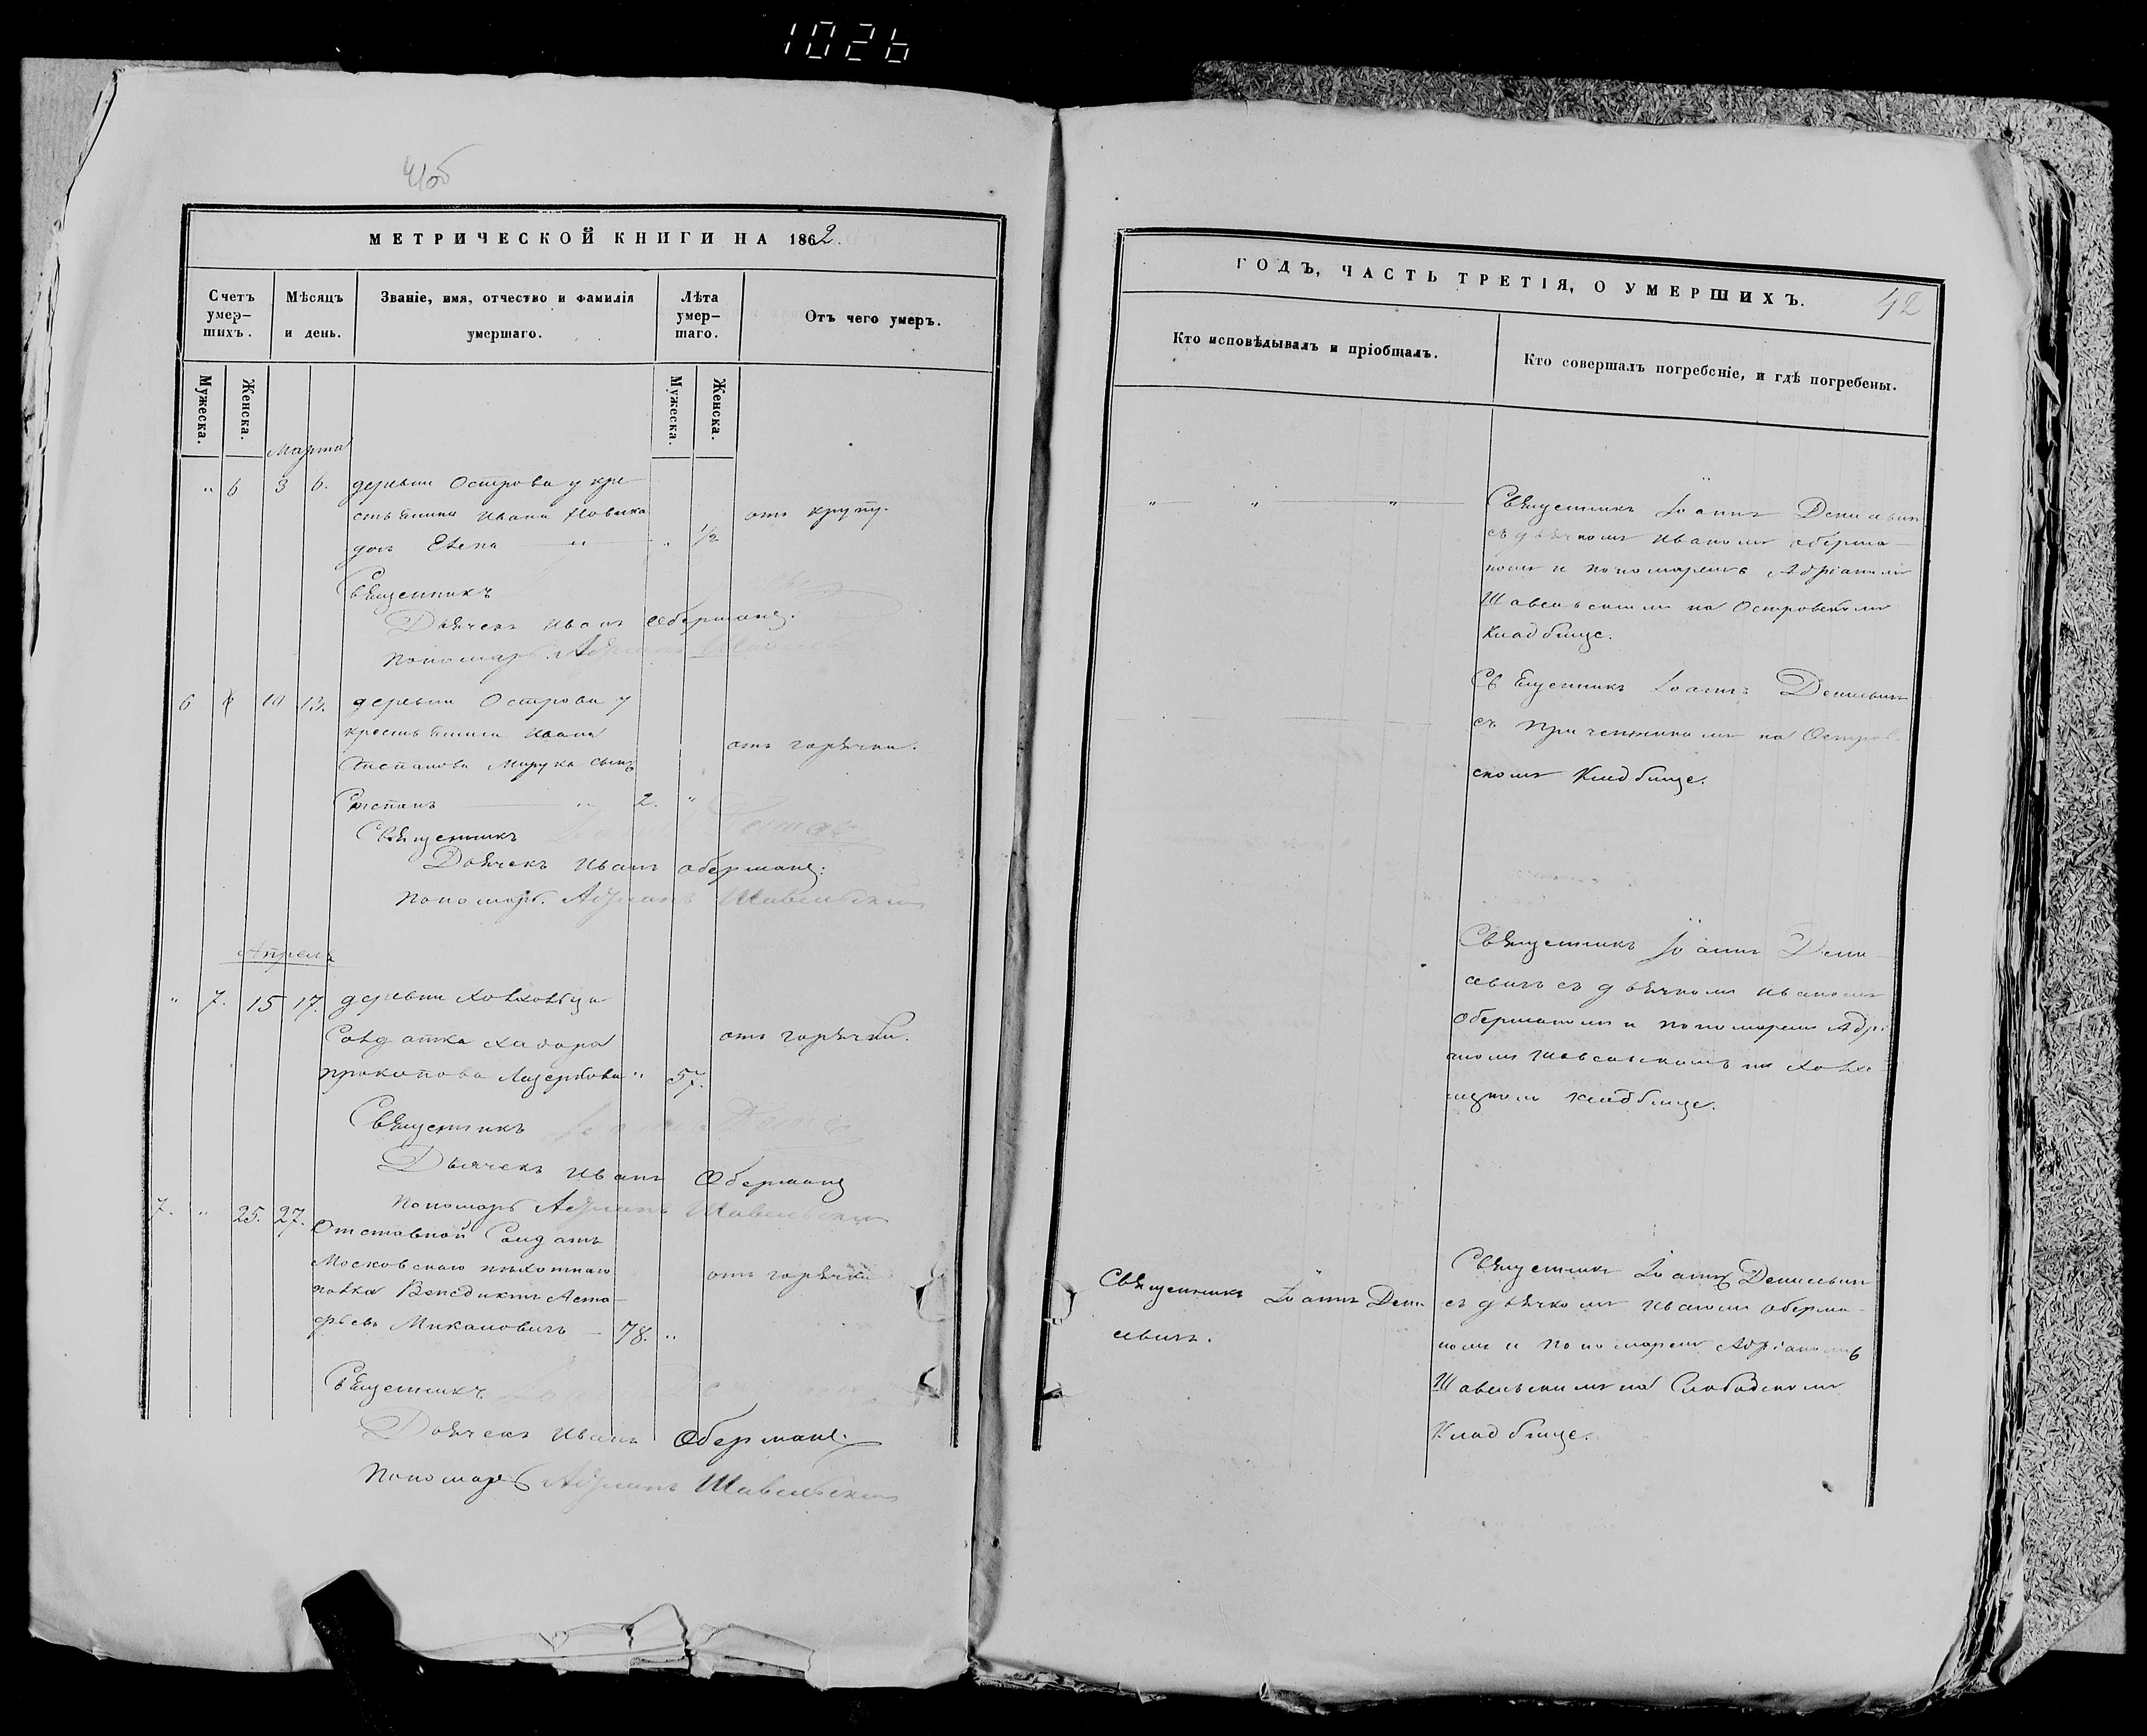 1026
41об
МЕТРИЧЕСКОЙ КНИГИ НА 1862.
Счетъ умер-шихъ.
Мѣсяцъ и день.
Званіе, имя, отчество и фамилія умершаго.
Лѣта умер-шаго.
Отъ чего умеръ.
Мужеска.
Женска.
Мужеска.
Женска.
Марта
" 6 3 6. деревни Острова у кре-
стьянина Ивана Новика
дочь Елена " " 1/2
отъ крупу.
Священникъ
Дьячекъ Иванъ Оберманъ.
пономарь Адріанъ
6 " 10 13. деревни Острова у
крестьянина Ивана
Степанова сынъ
Степанъ " 2. "
отъ горячки.
Священникъ
Дьячекъ Иванъ Оберманъ.
пономарь. Адріанъ Шавельскій
Апрель
" 7. 15 17. деревни
Солдатка
прокопова " 57.
отъ горячки.
Священникъ
Дьячекъ Иванъ Оберманъ
пономарь Адріанъ Шавельскій
7. " 25. 27. Отставной Солдатъ
Московскаго пѣхотнаго
полка Венедиктъ Аста-
фьевъ Микановичъ – 78. "
отъ горячки
Священникъ
Дьячекъ Иванъ Оберманъ.
Пономарь Адріанъ Шавельскій
ГОДЪ, ЧАСТЬ ТРЕТІЯ, О УМЕРШИХЪ.
42
Кто исповѣдывалъ и пріобщалъ.
Кто совершалъ погребеніе, и гдѣ погребены.
" " "
Священникъ Іоаннъ Денисевичъ
съ дьячкомъ Иваномъ Оберма-
номъ и пономаремъ Адріаномъ
Шавельскимъ на Островскомъ
Кладбище.
Священникъ Іоаннъ Денисевичъ
съ причетниками на Остров-
скомъ Кладбище.
Священникъ Іоаннъ Дени-
севичъ съ дьячкомъ Иваномъ
Оберманомъ и пономаремъ Адрі-
аномъ Шавельскимъ на
кладбище.
Священникъ Іоаннъ Дени-
севичъ.
Священникъ Іоаннъ Денисевичъ
съ дьячкомъ Иваномъ Оберма-
номъ и пономаремъ Адріаномъ
Шавельскимъ на Слободскомъ
Кладбище.